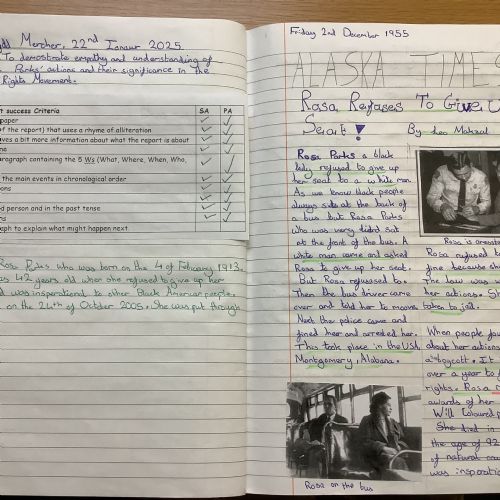 Mercher, 22nd Ionawr 2025.
To demostrate empathy and understanding of
Parks' actions and their significance in the
Rights Movement.
t success Criteria SA PA
paper
of the report) that uses a rhyme of alliteration
aves a bit more information about what the report is about
ne
aragraph containing the 5 Ws (What, Where, When, Who,
the main events in chronological order
ions
rd person and in the past tense
ns
aph to explain what might happen next.
Rosa Parks who was born on the 4 of February 1913.
as 42 years old when she refused to give up her
was insperational to other Black American people.
on the 24th of October 2005. She was put through
Friday 2nd December 1955
ALASKA TIMES
Rosa Refuses To Give U
Seat!
By Leo
Rosa Parks a black
lady refused to give up
her seat to a white man.
As we know black people
always sits at the back of
a bus but Rosa Parks
who was very didn't sat
at the front of the bus. A
white man came and asked
Rosa to give up her seat.
But Rosa refused to.
Then the bus driver came
over and told her to move.
Next the police came and
fined her and arrested her.
This took place in the USA
Montgomery, Alabama.
Rosa on the bus
Rosa is arreste
Rosa refused to
fine because
The law was
her actions. S
taken to jail.
When people fou
about her actions
a boycott. It
over a year to
rights. Rosa
awards of her
Will Coloured p
She died in
the age of 92
of natural cau
was insperatio